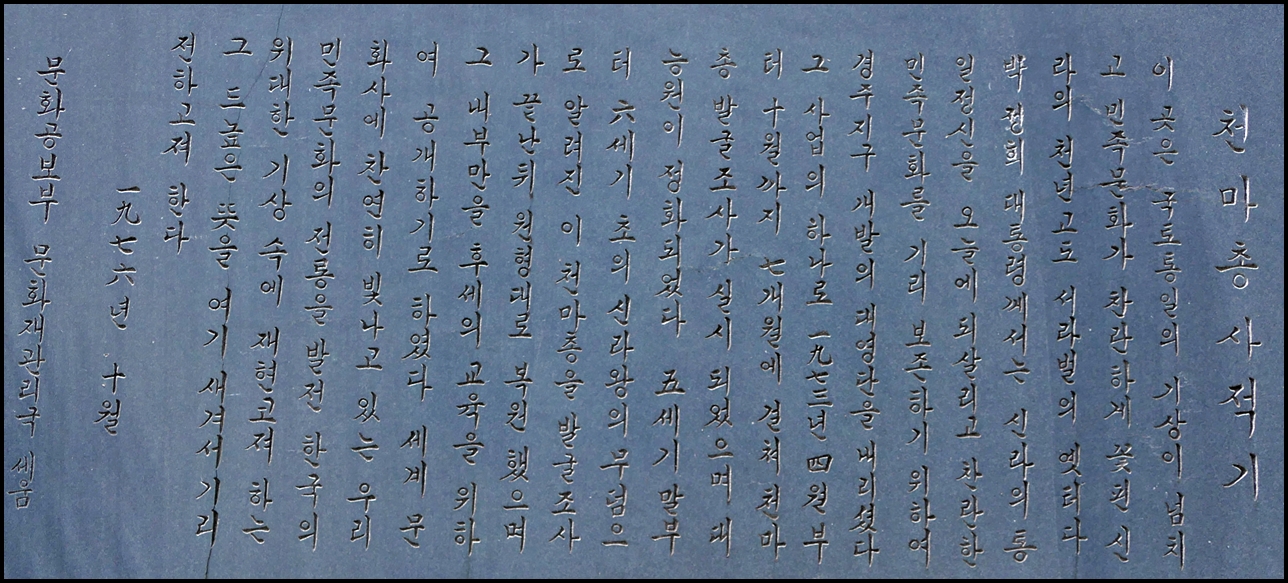 천마총사적기
이 곳은 국토통일의 기상이 넘치
고 민족문화가 찬란하게 꽃핀 신
라의 천년고도 서라벌의 옛터다
박정희 대통령께서는 신라의 통
일정신을 오늘에 되살리고 찬란한
민족문화를 기리 보존하기 위하여
경주지구 개발의 대영단을 내리셨다
그 사업의 하나로 一九七三년 四월부
터 十월까지 七개월에 걸쳐 천마
총 발굴조사가 실시 되었으며 대
능원이 정화되었다 五세기 말부
터 六세기 초의 신라왕의 무덤으
로 알려진 이 천마총을 발굴조사
가 끝난뒤 원형대로 복원 했으며
그 내부만을 후세의 교육을 위하
여 공개하기로 하였다 세계 문
화사에 찬연히 빛나고 있는 우리
민족문화의 전통을 발전 한국의
위대한 기상 속에 재현고져 하는
그 드높은 뜻을 여기 새겨서 기리
전하고져 한다
一九七六년 十월
문화공보부 문화재관리국 세움